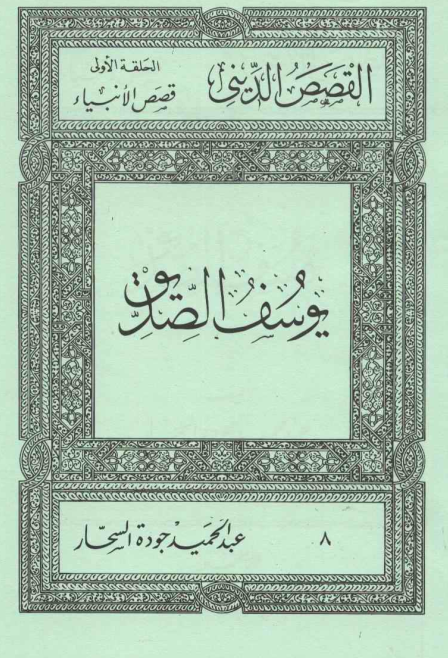 القصص الدينى
الحلقة الأولى
قصص الأنبياء
يوسف الصديق
٨
عبد الحميد جودة السحار